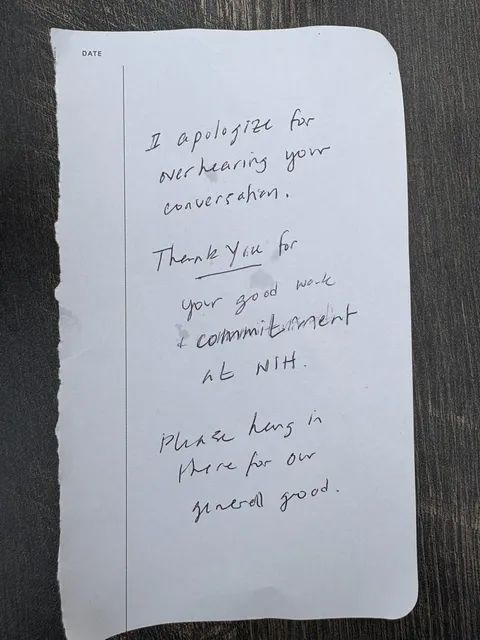 DATE
I apologize for
overhearing your
conversation.
Thank you for
your good work
+ commitment
at NIH.
Please hang in
there for our
general good.